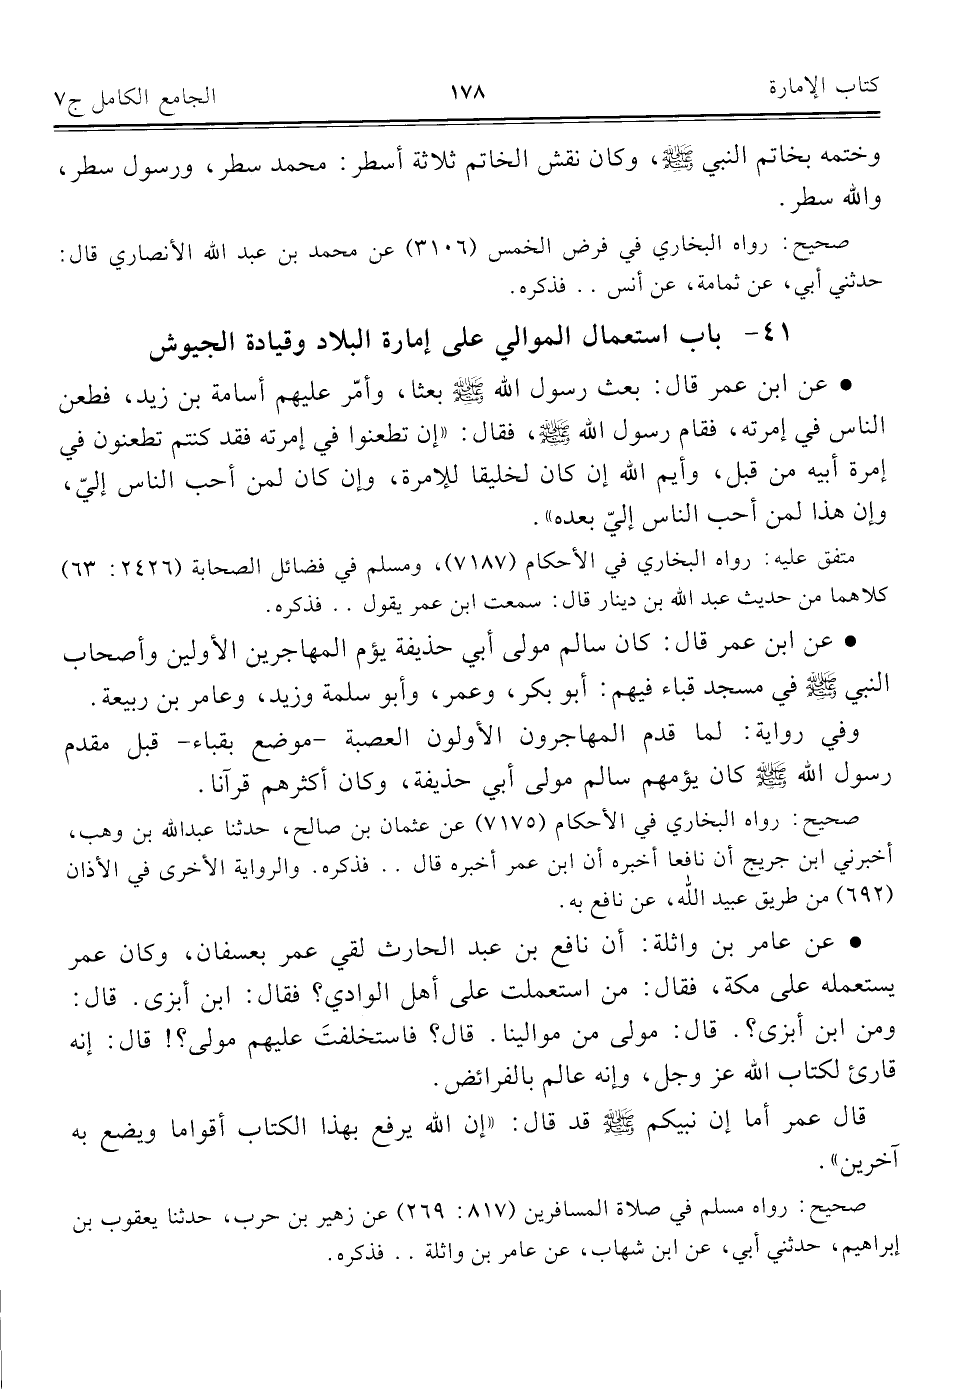 كتاب الإمارة ١٧٨ الجامع الكامل ج٧
وختمه بخاتم النبي ﷺ، وكان نقش الخاتم ثلاثة أسطر: محمد سطر، ورسول سطر،
والله سطر.
صحيح: رواه البخاري في فرض الخمس (٣١٠٦) عن محمد بن عبد الله الأنصاري قال:
حدثني أبي، عن ثمامة، عن أنس .. فذكره.
٤١- باب استعمال الموالي على إمارة البلاد وقيادة الجيوش
● عن ابن عمر قال: بعث رسول الله ﷺ بعثا، وأمّر عليهم أسامة بن زيد، فطعن
الناس في إمرته، فقام رسول الله ﷺ، فقال: «إن تطعنوا في إمرته فقد كنتم تطعنون في
إمرة أبيه من قبل، وأيم الله إن كان لخليقا للإمرة، وإن كان لمن أحب الناس إليّ،
وإن هذا لمن أحب الناس إليّ بعده».
متفق عليه: رواه البخاري في الأحكام (٧١٨٧)، ومسلم في فضائل الصحابة (٢٤٢٦: ٦٣)
كلاهما من حديث عبد الله بن دينار قال: سمعت ابن عمر يقول .. فذكره.
● عن ابن عمر قال: كان سالم مولى أبي حذيفة يؤم المهاجرين الأولين وأصحاب
النبي ﷺ في مسجد قباء فيهم: أبو بكر، وعمر، وأبو سلمة وزيد، وعامر بن ربيعة.
وفي رواية: لما قدم المهاجرون الأولون العصبة -موضع بقباء- قبل مقدم
رسول الله ﷺ كان يؤمهم سالم مولى أبي حذيفة، وكان أكثرهم قرآنا.
صحيح: رواه البخاري في الأحكام (٧١٧٥) عن عثمان بن صالح، حدثنا عبدالله بن وهب،
أخبرني ابن جريج أن نافعا أخبره أن ابن عمر أخبره قال .. فذكره. والرواية الأخرى في الأذان
(٦٩٢) من طريق عبيد الله، عن نافع به.
● عن عامر بن واثلة: أن نافع بن عبد الحارث لقي عمر بعسفان، وكان عمر
يستعمله على مكة، فقال: من استعملت على أهل الوادي؟ فقال: ابن أبزى. قال:
ومن ابن أبزى؟. قال: مولى من موالينا. قال؟ فاستخلفتَ عليهم مولى؟! قال: إنه
قارئ لكتاب الله عز وجل، وإنه عالم بالفرائض.
قال عمر أما إن نبيكم ﷺ قد قال: «إن الله يرفع بهذا الكتاب أقواما ويضع به
آخرين».
صحيح: رواه مسلم في صلاة المسافرين (٨١٧: ٢٦٩) عن زهير بن حرب، حدثنا يعقوب بن
إبراهيم، حدثني أبي، عن ابن شهاب، عن عامر بن واثلة .. فذكره.